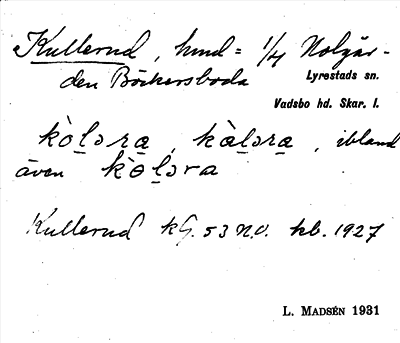 Kullerud, hmd = 1/4 Nolgår-
den Böckersboda
Lyrestads sn.
Vadsbo hd. Skar. l.
kò̀l̠əra̠, kàl̠əra̠, ibland
även kɵ̀l̠əra
Kullerud kG. 53 N.O. hb. 1927
L. MADSÉN 1931